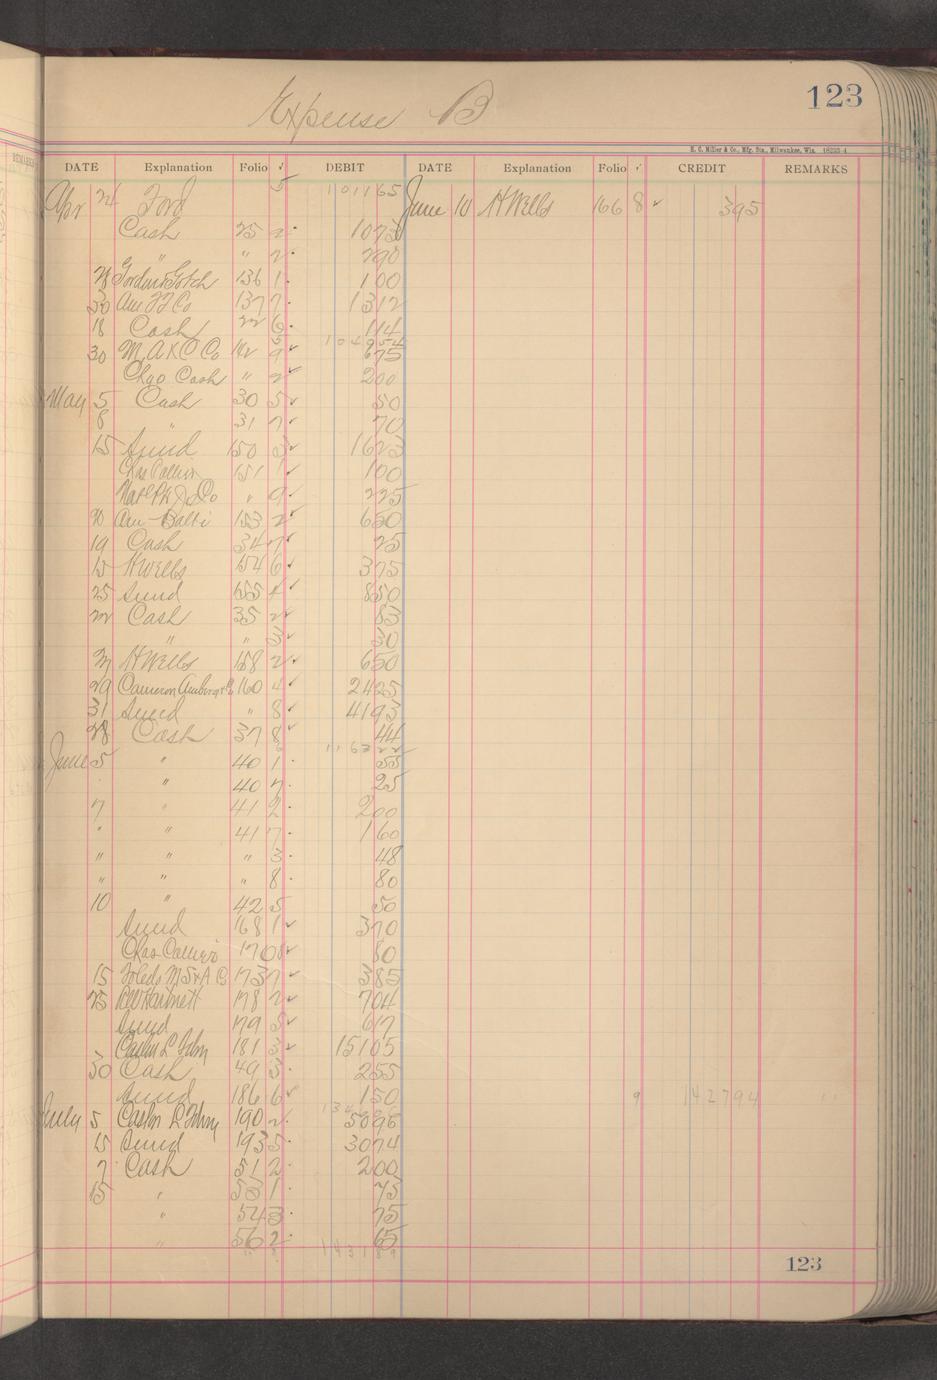 123
Expense B
H. C. Miller & Co., Mfg. Sta., Milwaukee, Wis. 18223-4
DATE Explanation Folio ✓ DEBIT DATE Explanation Folio ✓ CREDIT REMARKS
5 1011 65
Apr 24 Ford June 10 H Wells 166 8 ✓ 3 95
Cash 25 2 10 73
" " 2 2 90
28 Gordon & Gotch 136 1 1 00
30 Am T F Co 137 7 13 12
18 Cash 22 6 1 14
30 M A & C Co 142 9 ✓ 6 75
Chgo Cash " 2 ✓ 2 00
May 5 Cash 30 5 ✓ 50
8 " 31 7 ✓ 70
15 Sund 150 3 ✓ 16 23
Chas Collier 151 1 ✓ 1 00
" 9 ✓ 2 25
20 153 2 ✓ 6 50
19 Cash 34 7 ✓ 25
15 H Wells 154 6 ✓ 3 75
25 Sund 155 4 ✓ 8 50
22 Cash 35 2 ✓ 83
" " 3 ✓ 30
27 H Wells 158 2 ✓ 6 50
29 Cameron Amberg & Co 160 4 ✓ 24 25
31 Sund " 8 ✓ 41 93
28 Cash 37 8 ✓ 44
1163 22
June 5 " 40 1 55
" 40 7 25
7 " 41 2 2 00
" " 41 7 1 60
" " " 3 48
" " " 8 80
10 " 42 5 50
Sund 168 1 ✓ 3 70
Chas Collier 170 8 ✓ 80
15 Toledo M S & A Co 173 7 ✓ 3 85
25 R W Hartnett 178 2 ✓ 7 04
Sund 179 5 ✓ 6 17
Caslon L Fdry 181 3 ✓ 151 05
30 Cash 49 3 2 55
Sund 186 6 ✓ 1 50 9 1427 94 "
July 5 Caslon L Fdry 190 2 50 96
15 Sund 193 5 30 74
7 Cash 51 2 2 00
15 " 53 1 75
" 54 3 75
" 56 2 65
1431 89
123